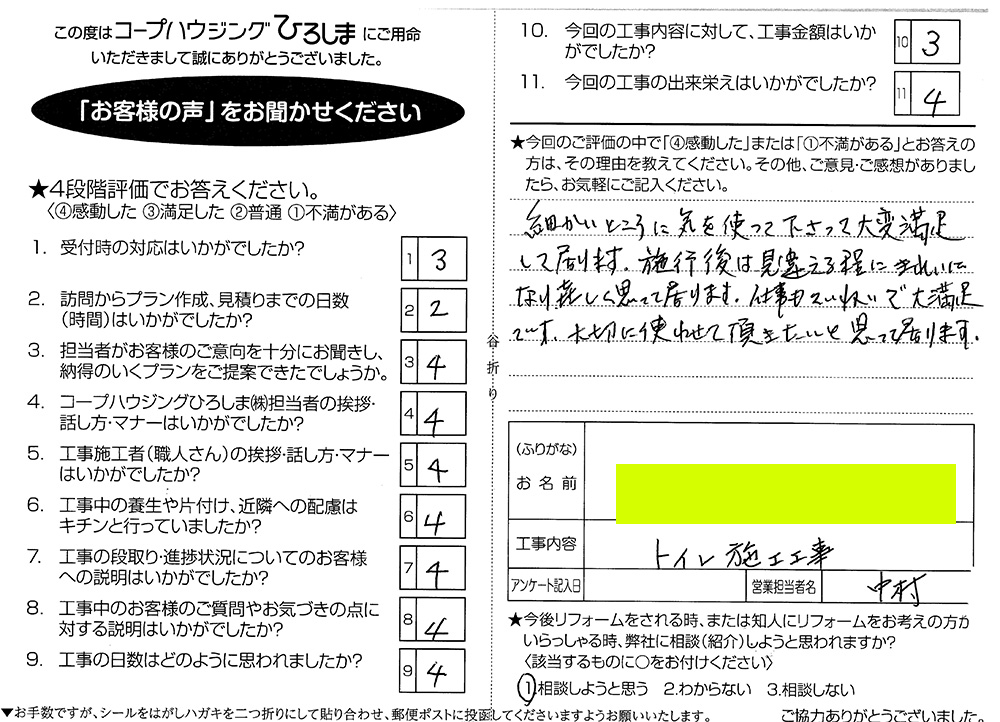 この度はコープハウジングひろしまにご用命
いただきまして誠にありがとうございました。
「お客様の声」をお聞かせください
★4段階評価でお答えください。
〈④感動した ③満足した ②普通 ①不満がある〉
1. 受付時の対応はいかがでしたか? 1 3
2. 訪問からプラン作成、見積りまでの日数
（時間）はいかがでしたか? 2 2
3. 担当者がお客様のご意向を十分にお聞きし、
納得のいくプランをご提案できたでしょうか。 3 4
4. コープハウジングひろしま㈱担当者の挨拶・
話し方・マナーはいかがでしたか? 4 4
5. 工事施工者（職人さん）の挨拶・話し方・マナー
はいかがでしたか? 5 4
6. 工事中の養生や片付け、近隣への配慮は
キチンと行っていましたか? 6 4
7. 工事の段取り・進捗状況についてのお客様
への説明はいかがでしたか? 7 4
8. 工事中のお客様のご質問やお気づきの点に
対する説明はいかがでしたか? 8 4
9. 工事の日数はどのように思われましたか? 9 4
▼お手数ですが、シールをはがしハガキを二つ折りにして貼り合わせ、郵便ポストに投函してくださいますようお願いいたします。
谷折り
10. 今回の工事内容に対して、工事金額はいか
がでしたか? 10 3
11. 今回の工事の出来栄えはいかがでしたか? 11 4
★今回のご評価の中で「④感動した」または「①不満がある」とお答えの
方は、その理由を教えてください。その他、ご意見・ご感想がありまし
たら、お気軽にご記入ください。
細かいところに気を使って下さって大変満足
して居ります。施行後は見違える程にきれいに
なり嬉しく思って居ります。仕事もていねいで大満足
です。大切に使わせて頂きたいと思って居ります。
（ふりがな）
お名前
工事内容 トイレ施工工事
アンケート記入日 営業担当者名 中村
★今後リフォームをされる時、または知人にリフォームをお考えの方が
いらっしゃる時、弊社に相談（紹介）しようと思われますか?
〈該当するものに○をお付けください〉
1.相談しようと思う 2.わからない 3.相談しない
ご協力ありがとうございました。